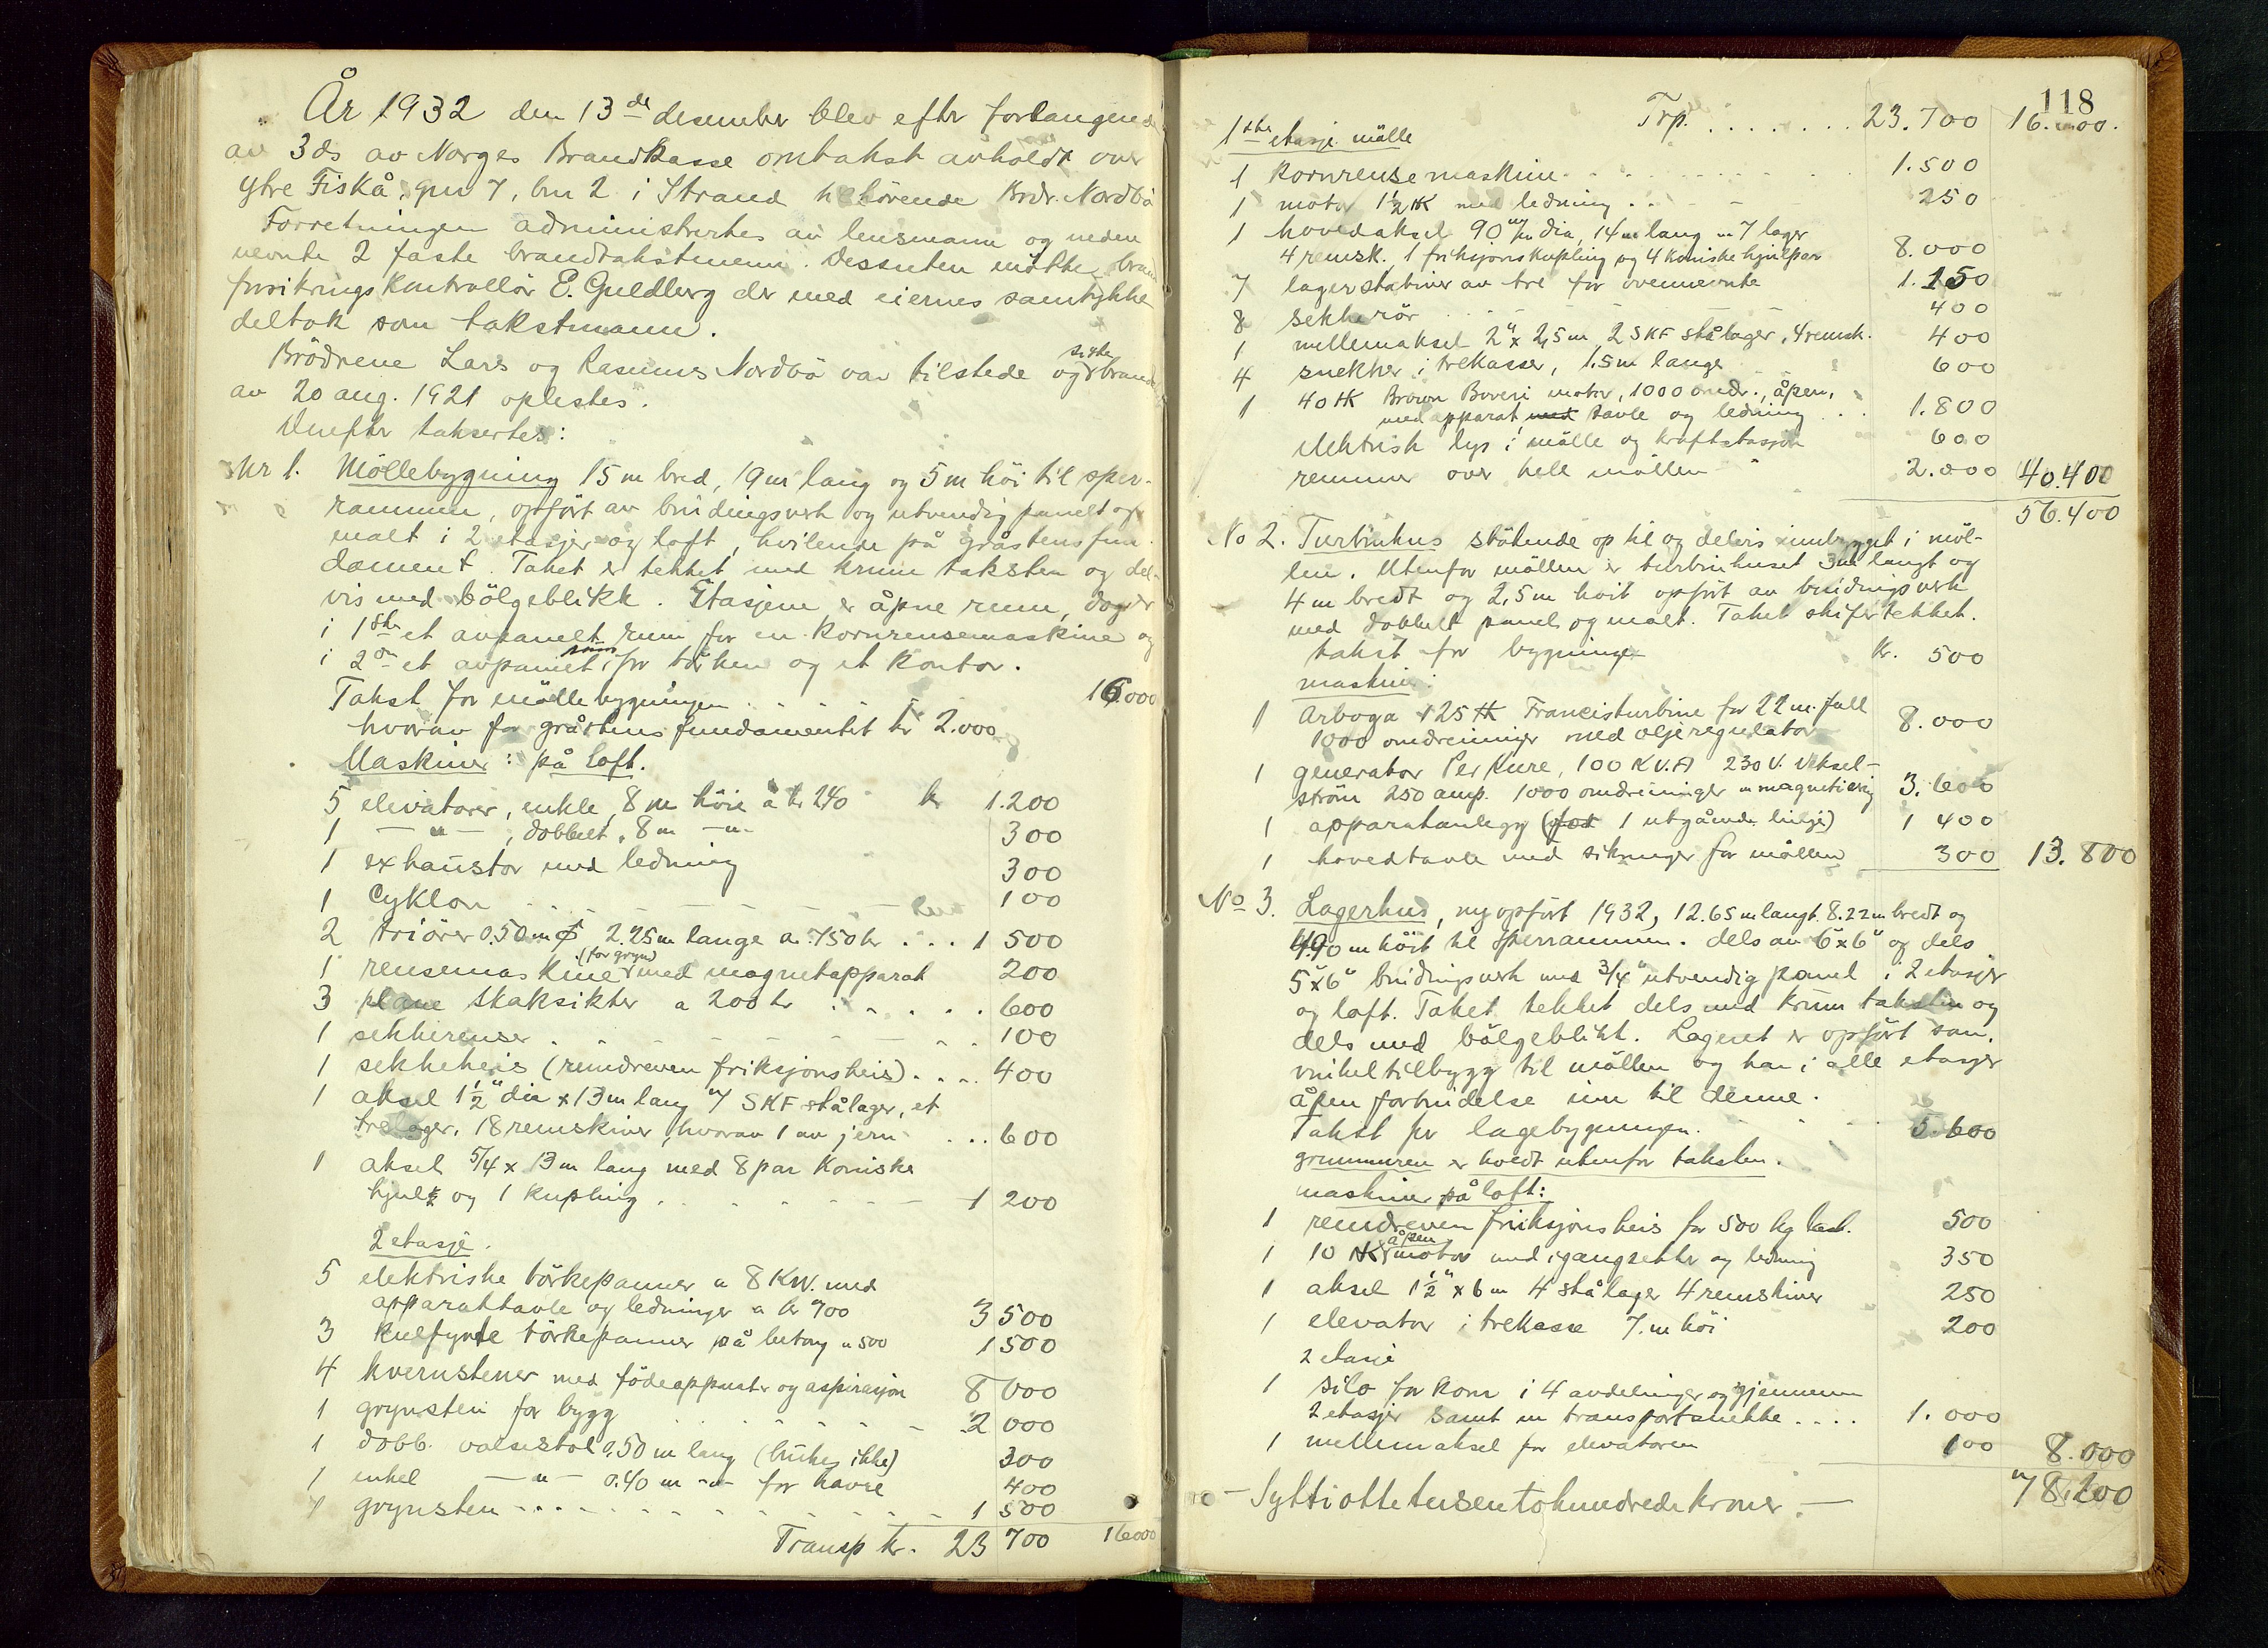 År 1932 den 13de desember blev efter forlangende
av 3ds av Norges Brandkasse omtakst avholdt over
ytre Fiskå, gnr 7, bnr 2 i Strand tilhörende Brdr. Nordbö
Forretningen administrertes av lensmann og neden
nevnte 2 faste brandtakstmenn. Dessuten mötte brand
forsikringskontrollör E. Guldberg der med eiernes samtykke
deltok som takstmann.
Brödrene Lars og Rasmus Nordbö var tilstede og siste brand
av 20 aug. 1921 oplestes.
Derefter taksertes:
Nr 1. Möllebygning 15 m bred, 19 m lang og 5 m höi til sper-
rammen, opfört av bindingsverk og utvendig panelt og
malt i 2 etasjer og loft, hvilende på gråstensfun
dament. Taket er tekket med krum taksten og del-
vis med bölgeblikk. Etasjene er åpne rum, dog er
i 1ste et avpanelt rum for en kornrensemaskine og
i 2en et avpanelt rum for törken og et kontor.
Takst for möllebygningen . . . . . 16.000
hvorav for gråstensfundamentet kr 2.000
Maskiner: på loft.
5 elevatorer, enkle, 8 m höie a kr 240 kr 1.200
1 — " — , dobbelt, 8 m — " — 300
1 exhaustor med ledning 300
1 Cyklon 100
2 triörer 0.50 m ø 2.25 m lange a 750 kr . . . 1 500
1 rensemaskine (for gryn) med magnetapparat 200
3 plane skaksikter a 200 kr . . . . . 600
1 sekkerenser 100
1 sekkeheis (remdreven friksjonsheis) . . . . 400
1 aksel 1½" dia x 13 m lang 7 SKF stålager, et
trelager, 18 remskiver, hvorav 1 av jern . . . 600
1 aksel 5/4 x 13 m lang med 8 par koniske
hjul og 1 kupling 1 200
2 etasje.
5 elektriske törkepanner a 8 KW. med
apparattavle og ledninger a kr 700 3 500
3 kulfyrte törkepanner på betong a 500 1 500
4 kvernstener med födeapparater og aspirasjon 8 000
1 grynsten for bygg 2 000
1 dobb. valsestol 0,50 m lang (brukes ikke) 300
1 enkel — " — 0.40 m — " — for havre 400
1 grynsten 1 500
Transp kr. 23 700 16000
118
Trp. . . . . . . . 23.700 16.000.
1ste etasje mölle
1 kornrensemaskine 1.500
1 motor 1½ HK med ledning . . 250
1 hovedaksel 90 m/m dia, 14 m lang m 7 lager
4 remsk. 1 friksjonskupling og 4 koniske hjulpar 8.000
7 lagerstativer av tre for ovennevnte 1.150
8 sekkerör 400
1 mellemaksel 2" x 2,5 m, 2 SKF stålager, 4 remsk. 400
4 snekker i trekasser, 1.5 m lange 600
1 40 HK Brown Boveri motor, 1000 omdr., åpen,
med apparat, med tavle og ledning . . 1.800
elektrisk lys i mölle og kraftstasjon 600
remmer over hele möllen 2.000 40.400
56.400
No 2. Turbinhus stötende op til og delvis innbygget i möl-
len. Utenfor möllen er turbinhuset 3 m langt og
4 m bredt og 2,5 m höit opfört av bindingsverk
med dobbelt panel og malt. Taket skifertekket.
takst for bygningen kr. 500
maskiner:
1 Arboga 125 HK Francisturbine for 22 m. fall
1000 omdreininger med oljeregulator 8.000
1 generator Per Kure, 100 KV.A 230 V. veksel-
ström 250 amp. 1000 omdreininger m magnetisering 3.600
1 apparatanlegg (for 1 utgående linje) 1 400
1 hovedtavle med sikringer for möllen 300 13.800
No 3. Lagerhus, nyopfört 1932, 12.65 m langt. 8.22 m bredt og
4.90 m höit til sperrammen. dels av 6"x6" og dels
5"x6" bindingsverk med 3/4" utvendig panel i 2 etasjer
og loft. Taket tekket dels med krum taksten og
dels med bölgeblikk. Lageret er opfört som
vinkeltilbygg til möllen og har i alle etasjer
åpen forbindelse inn til denne.
Takst for lagebygningen. 5.600
grunnmuren er holdt utenfor taksten.
maskiner på loft:
1 remdreven friksjonsheis for 500 kg last. 500
1 10 HK åpen motor med igangsetter og ledning 350
1 aksel 1½" x 6 m 4 stålager 4 remskiver 250
1 elevator i trekasse 7. m höi 200
2 etasje
1 silo for korn i 4 avdelinger og gjennem
2 etasjer samt en transportsnekke . . . . 1.000
1 mellemaksel for elevatoren 100 8.000
— Syttiottetusentohundredekroner. — 78.200